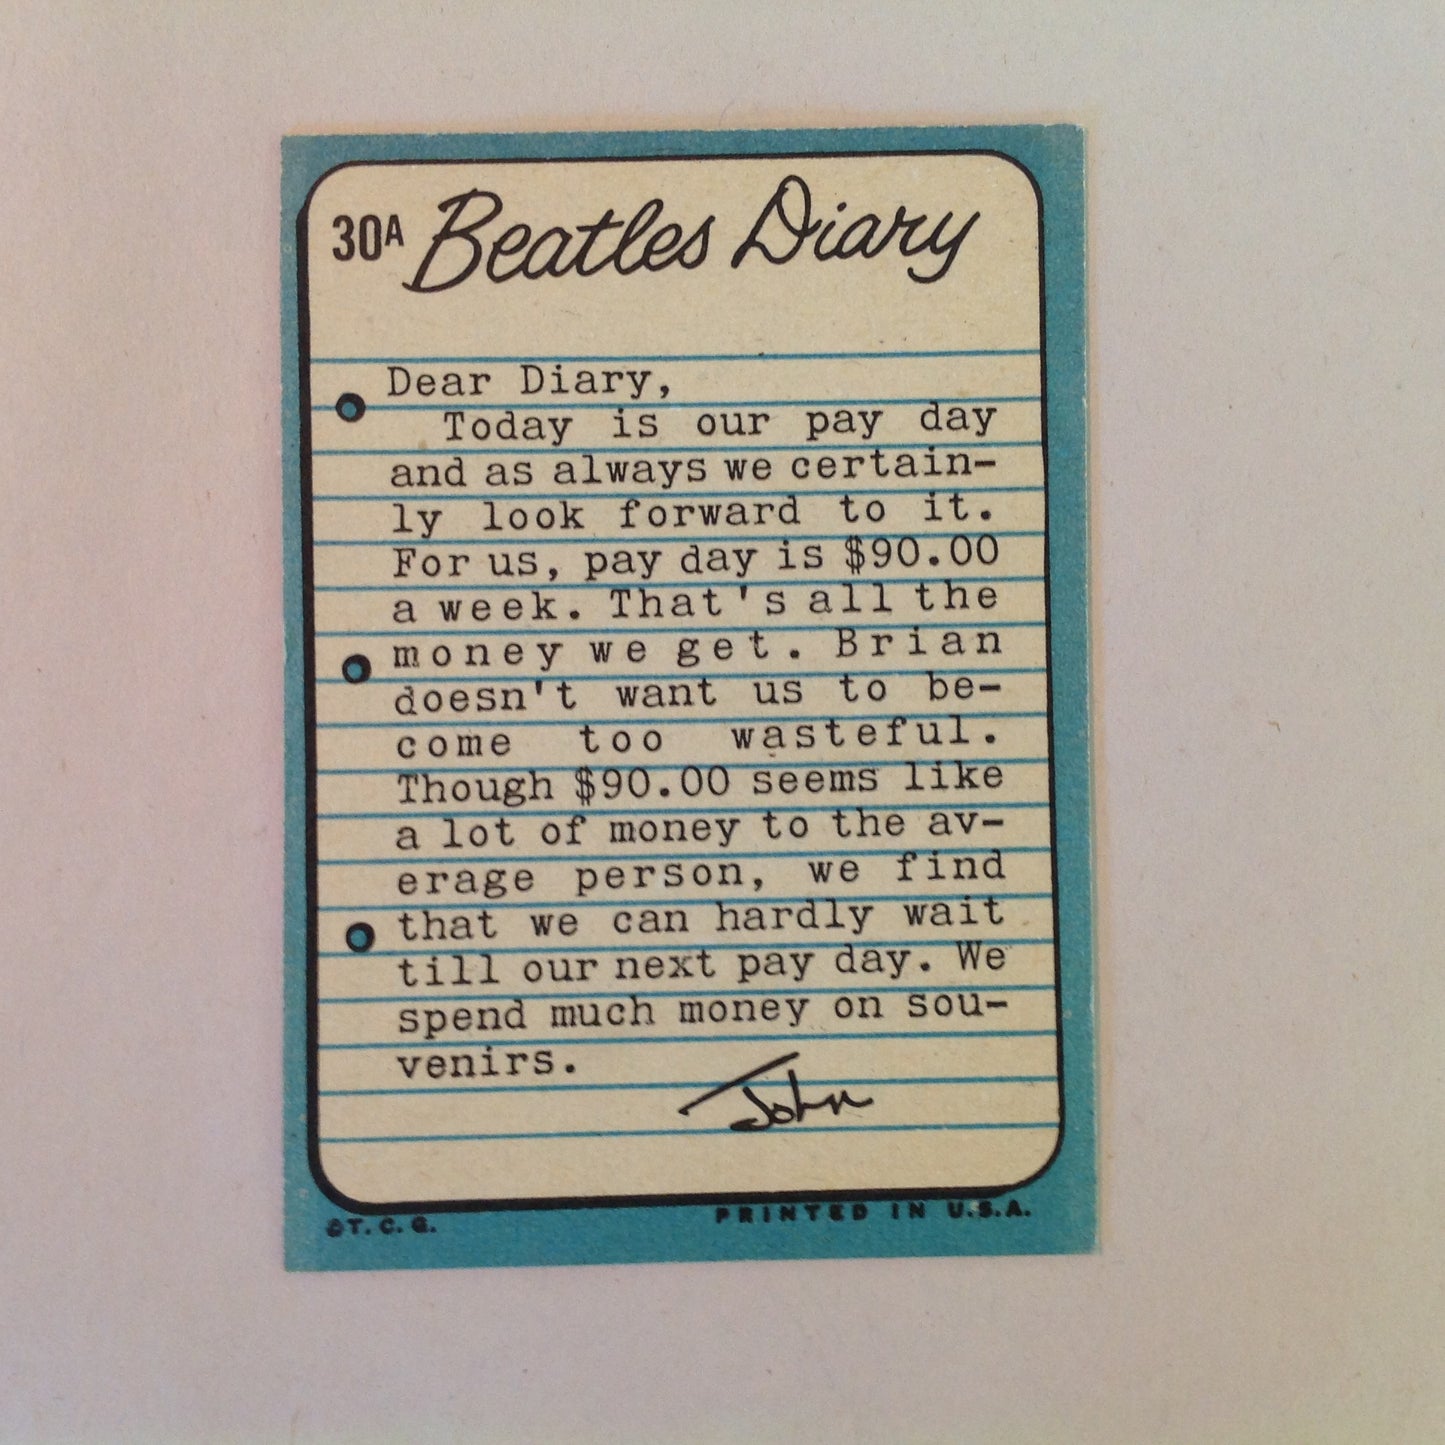 30A Beatles Diary
Dear Diary,
Today is our pay day
and as always we certain-
ly look forward to it.
For us, pay day is $90.00
a week. That's all the
money we get. Brian
doesn't want us to be-
come too wasteful.
Though $90.00 seems like
a lot of money to the av-
erage person, we find
that we can hardly wait
till our next pay day. We
spend much money on sou-
venirs.
John
©T.C.G. PRINTED IN U.S.A.